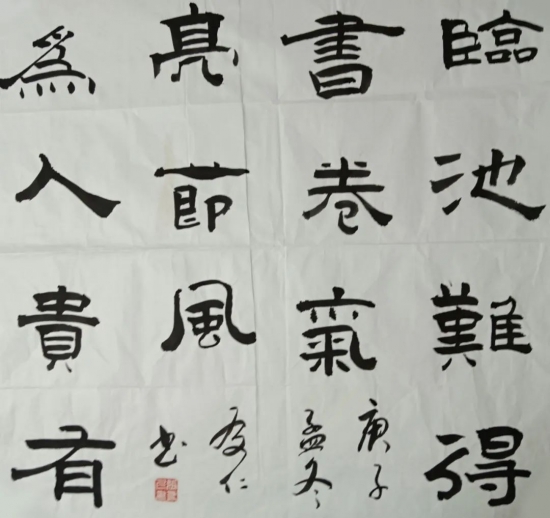 臨池難得
書卷氣
爲人貴有
亮節風
庚子
孟冬
仁
書